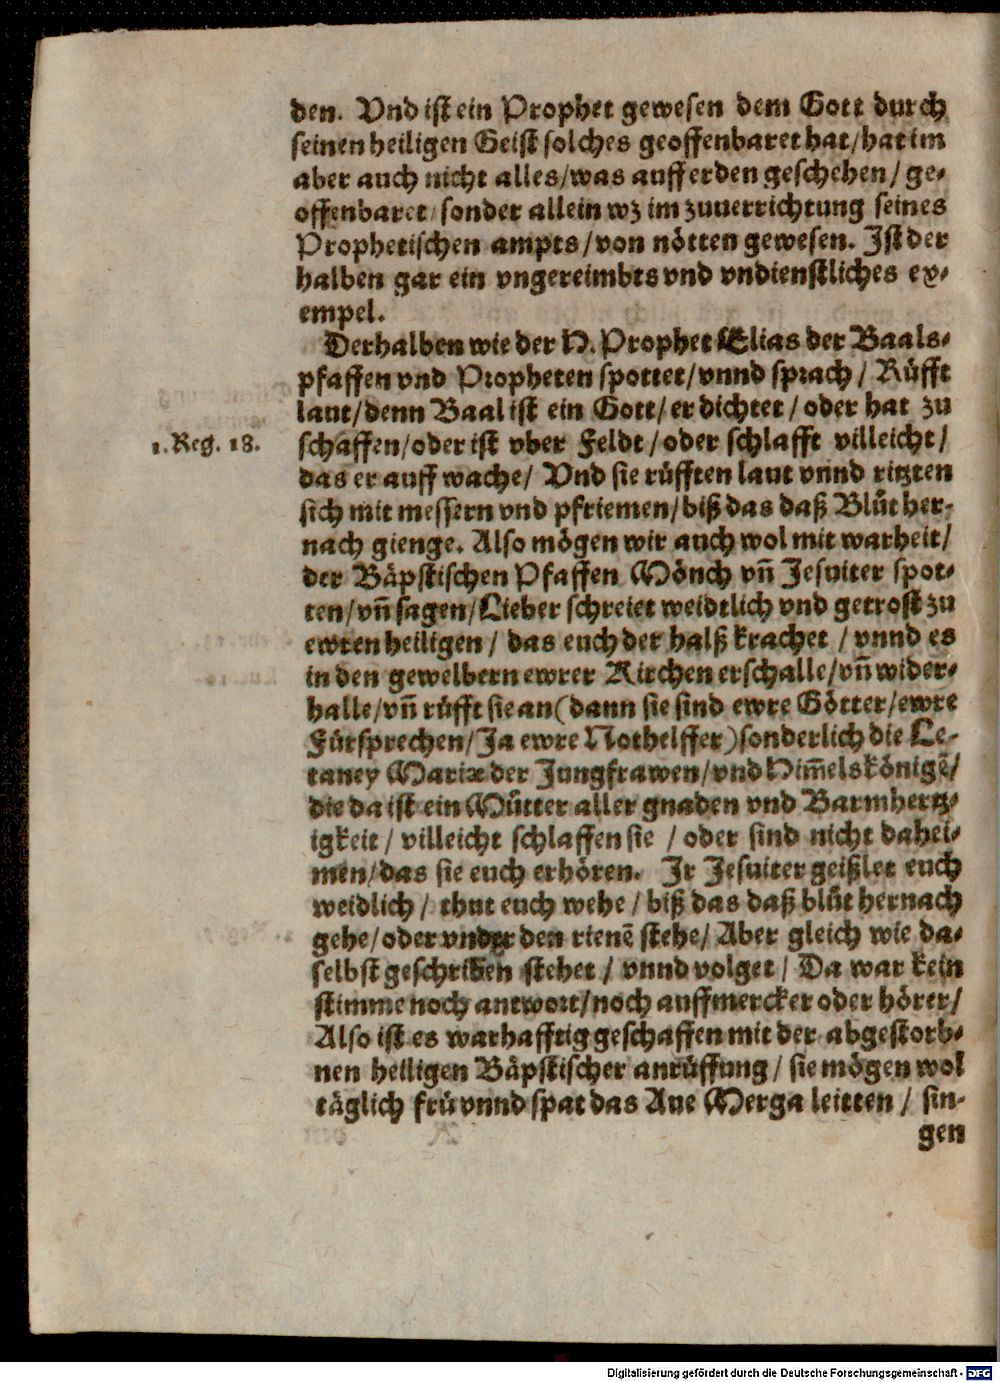 den. Vnd ist ein Prophet gewesen dem Gott durch
seinen heiligen Geist solches geoffenbaret hat/hat im
aber auch nicht alles/was auff erden geschehen/ ge-
offenbaret/sonder allein wz im zuuerrichtung seines
Prophetischen ampts/von nötten gewesen. Ist der
halben gar ein vngereimbts vnd vndienstliches ex-
empel.
Derhalben wie der H. Prophet Elias der Baals-
pfaffen vnd Propheten spottet/vnnd sprach/ Rüfft
laut/denn Baal ist ein Gott/er dichtet/oder hat zu
1. Reg. 18.
schaffen/oder ist vber Feldt/oder schlafft villeicht/
das er auff wache/ Vnd sie rüfften laut vnnd ritzten
sich mit messern vnd pfriemen/biß das daß Blůt her-
nach gienge. Also mögen wir auch wol mit warheit/
der Bäpstischen Pfaffen Mönch vñ Jesuiter spot-
ten/vñ sagen/Lieber schreiet weidtlich vnd getrost zu
ewren heiligen/ das euch der halß krachet /vnnd es
in den gewelbern ewrer Kirchen erschalle/vñ wider-
halle/vñ rüfft sie an(dann sie sind ewre Götter/ewre
Fürsprechen/Ja ewre Nothelffer)sonderlich die Le-
taney Mariæ der Jungfrawen/vnd Him̃elskönigẽ/
die da ist ein Můtter aller gnaden vnd Barmhertz-
igkeit/ villeicht schlaffen sie /oder sind nicht dahei-
men/das sie euch erhören. Ir Jesuiter geißlet euch
weidlich/ thut euch wehe/biß das daß blůt hernach
gehe/oder vnder den rienẽ stehe/ Aber gleich wie da-
selbst geschriben stehet/ vnnd volget/ Da war kein
stimme noch antwort/noch auffmercker oder hörer/
Also ist es warhafftig geschaffen mit der abgestorb-
nen heiligen Bäpstischer anrüffung/ sie mögen wol
täglich frü vnnd spat das Aue Merga leitten/ sin-
gen
Digitalisierung gefördert durch die Deutsche Forschungsgemeinschaft - DFG